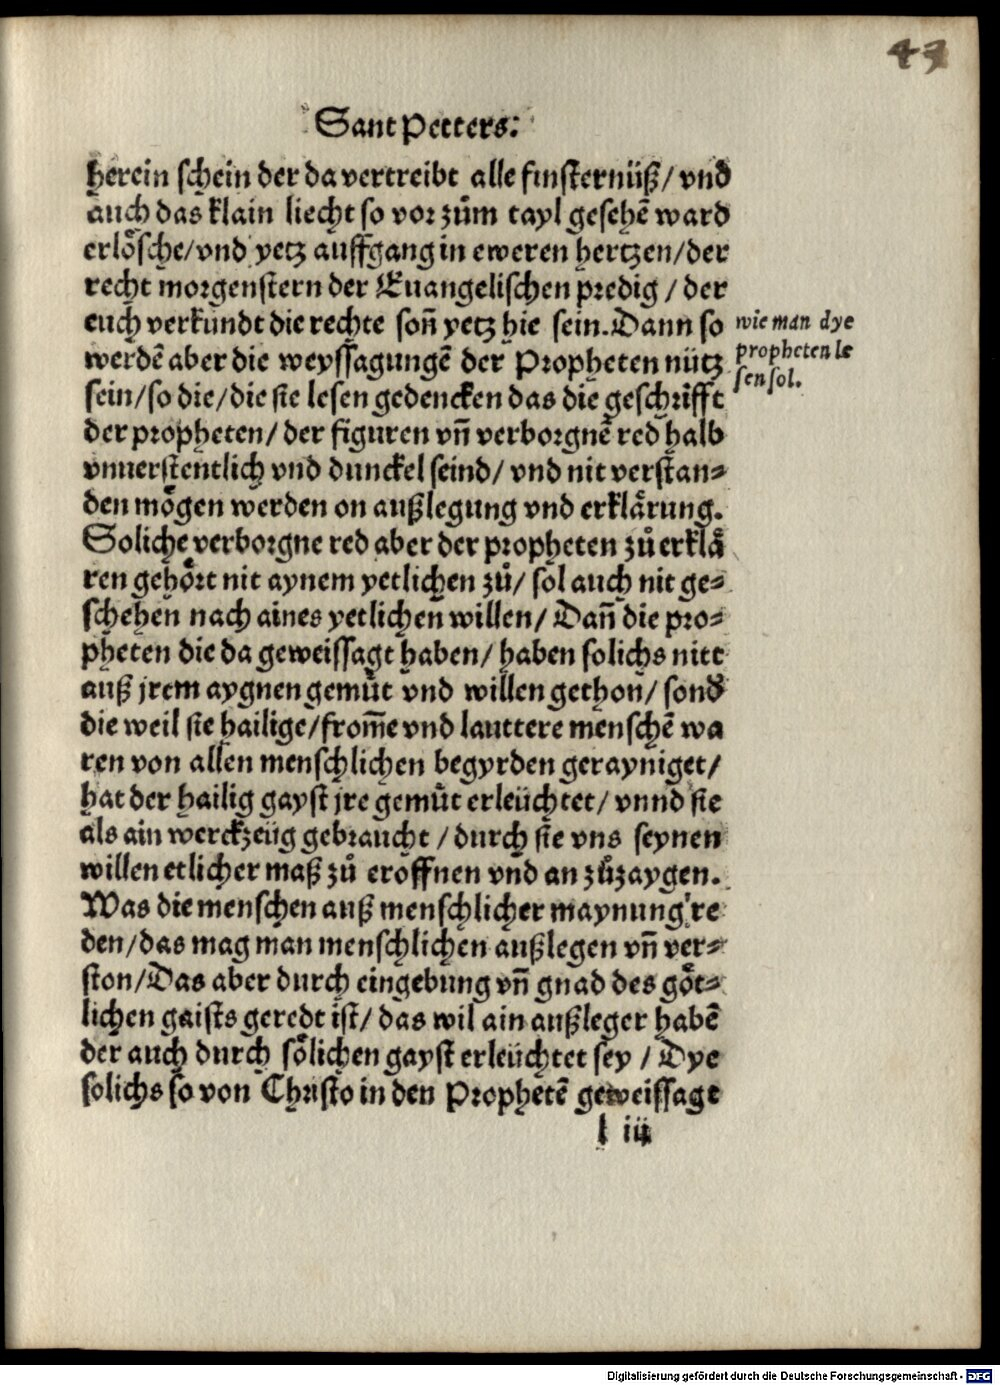 43
Sant Petters:
herein schein der da vertreibt alle finsternüß/ vnd
auch das klain liecht so vor zům tayl gesehē ward
erlösche/vnd yetz auffgang in eweren hertzen/der
recht morgenstern der Euangelischen predig / der
euch verkündt die rechte soñ yetz hie sein. Dann so
werdē aber die weyssagungē der Propheten nütz
sein/so die/die sie lesen gedencken das die geschrifft
der propheten/ der figuren vñ verborgnē red halb
vnuerstentlich vnd dunckel seind/ vnd nit verstan-
den mögen werden on außlegung vnd erklärung.
Soliche verborgne red aber der propheten zů erklä
ren gehört nit aynem yetlichen zů/ sol auch nit ge-
schehen nach aines yetlichen willen/ Dañ die pro-
pheten die da geweissagt haben/ haben solichs nitt
auß jrem aygnen gemůt vnd willen gethon/ sond
die weil sie hailige/from̃e vnd lauttere menschē wa
ren von allen menschlichen begyrden gerayniget/
hat der hailig gayst jre gemůt erleüchtet/ vnnd sie
als ain werckzeüg gebraucht / durch sie vns seynen
willen etlicher maß zů eröffnen vnd an zůzaygen.
Was die menschen auß menschlicher maynung re
den/das mag man menschlichen außlegen vñ ver-
ston/Das aber durch eingebung vñ gnad des göt-
lichen gaists geredt ist/ das wil ain außleger habē
der auch durch sölichen gayst erleüchtet sey / Dye
solichs so von Christo in den Prophetē geweissagt
l iii
wie man dye
propheten le
sen sol.
Digitalisierung gefördert durch die Deutsche Forschungsgemeinschaft - DFG